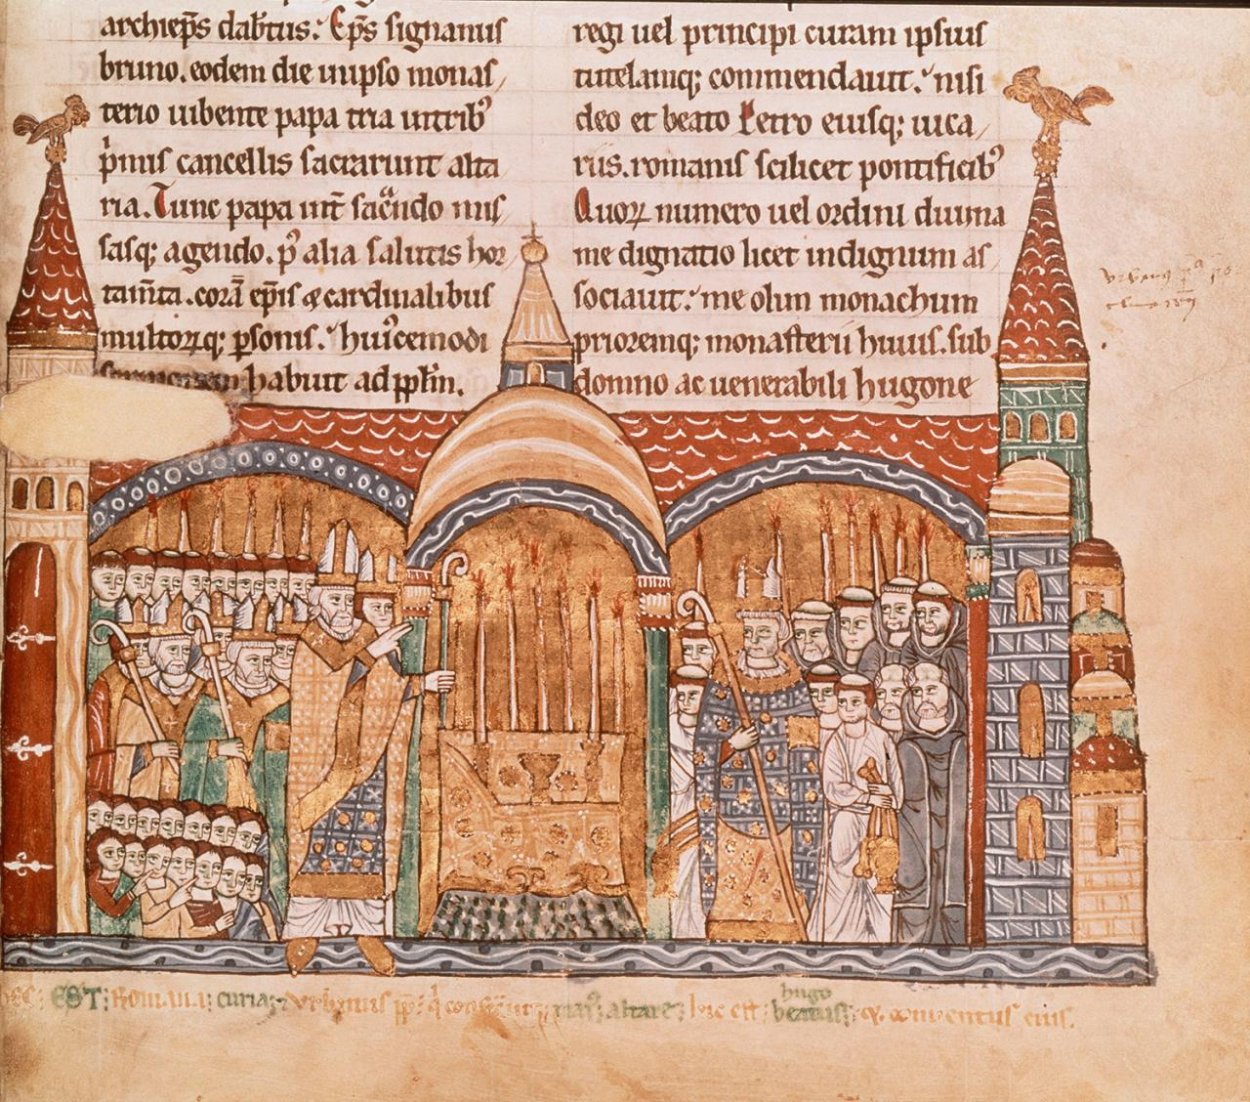 archiep̄s dab̄tus. Ep̄s signanus
bruno. eodem die in ipso monas
terio iubente papa tria in trib᾽
p̾mis cancellis sacrarunt alta
ria. Tunc papa int̄ sac̾ndo mis
sasq; agendo. p᾽ alia salutis hor
tam̄ta. corā ep̄is & cardinalibus
multorꝝq; ꝑsonis. hui᾽cemodi
habuit ad pp̄lm.
regi uel principi curam ipsius
tutelamq; commendauit. nisi
deo et beato Petro eiusq; uica
riis. romanis scilicet pontificib᾽
Quorꝝ numero uel ordini diuina
me dignatio licet indignum as
sociauit. me olim monachum
prioremq; monasterii huius. sub
domno ac uenerabili hugone
EST: Romana: curia: Urbanus pp̄: altare: hic est: hugo beatus: conventus eius.